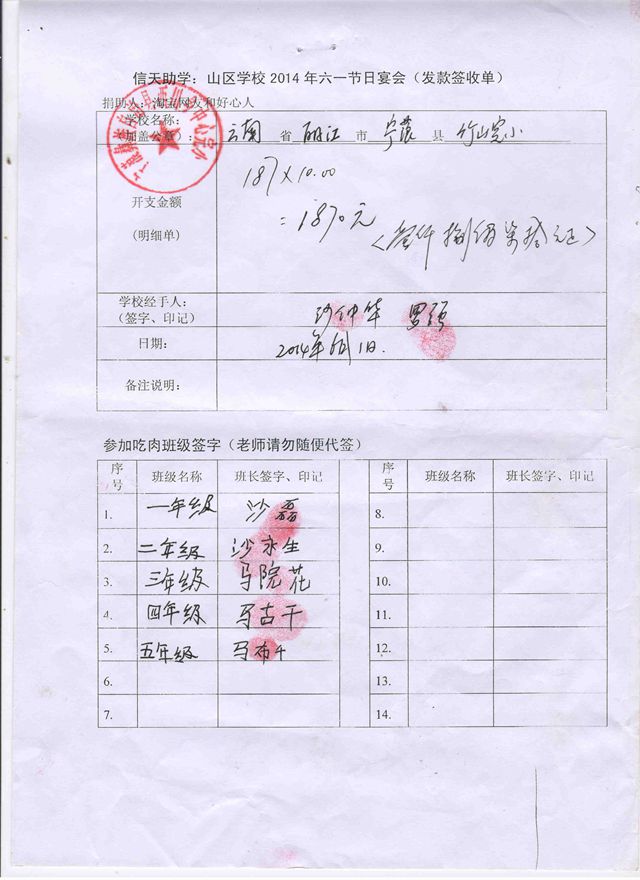 信天助学：山区学校 2014 年六一节日宴会（发款签收单）
捐助人：淘宝网友和好心人
学校名称：
（加盖公章）：
云南 省 丽江 市 宁蒗 县 竹山完小
开支金额
(明细单)
187×10.00
=1870元
<壹仟捌佰柒拾元正>
学校经手人：
（签字、印记）
沙仲华 罗强
日期：
2014年6月1日.
备注说明：
参加吃肉班级签字（老师请勿随便代签）
序号 班级名称 班长签字、印记 序号 班级名称 班长签字、印记
1. 一年级 沙磊 8.
2. 二年级 沙永生 9.
3. 三年级 马院花 10.
4. 四年级 马古干 11.
5. 五年级 马布千 12.
6. 13.
7. 14.